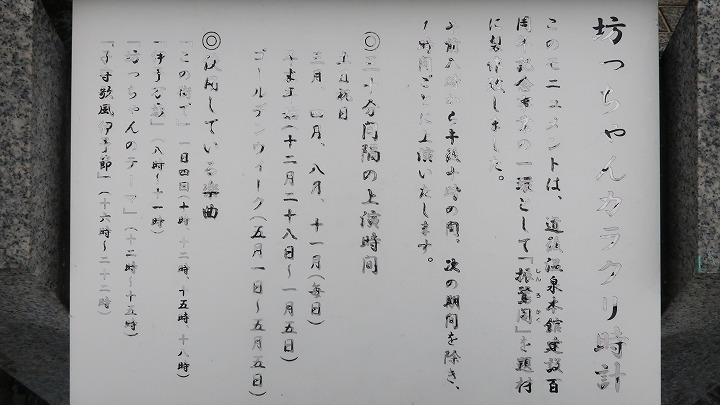 坊っちゃんカラクリ時計
このモニュメントは、道後温泉本館建設百
周年記念事業の一環として『振鷺閣』を題材
しんろかく
に製作致しました。
午前八時から午後十時の間、次の期間を除き、
1時間ごとに上演いたします。
◎三十分間隔の上演時間
土日祝日
三月、四月、八月、十一月(毎日)
年末年始(十二月二十八日〜一月五日)
ゴールデンウィーク(五月一日〜五月五日)
◎使用している楽曲
『この街で』一日四回(十時、十二時、十五時、十八時)
(八時〜十一時)
『坊っちゃんのテーマ』(十二時〜十五時)
『子守歌風伊予節』(十六時〜二十二時)